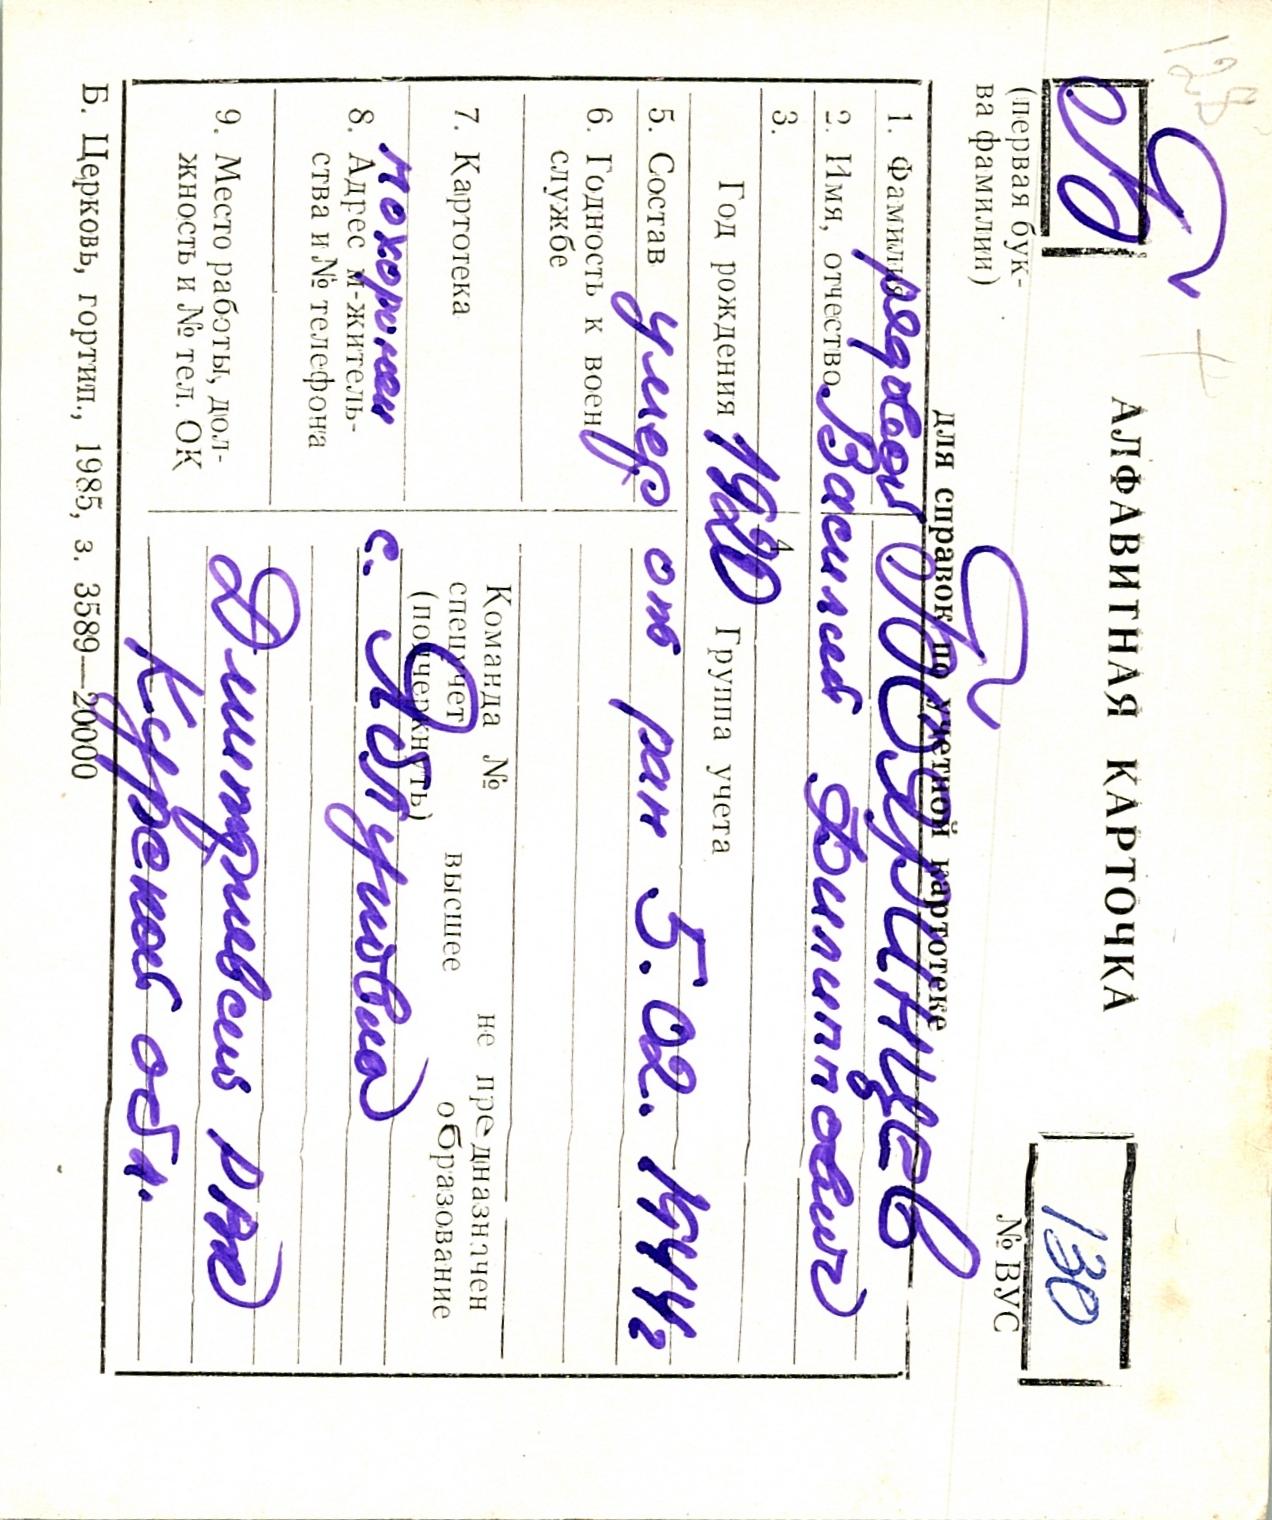 АЛФАВИТНАЯ КАРТОЧКА
Б
(первая бук-
ва фамилии)
130
№ ВУС
для справок по учетной картотеке
1. Фамилия рядовой Бояринцев
2. Имя, отчество Василий Филиппович
3.
Год рождения 1920 Группа учета
5. Состав умер от ран 5.02.1944 г
6. Годность к воен
службе
7. Картотека
Команда № не предназначен
спецучет высшее образование
(подчеркнуть)
8. Адрес м-житель-
ства и № телефона
похоронен с.
9. Место работы, дол-
жность и № тел. ОК
Дмитриевский р-н
Курской обл.
Б. Церковь, гортип., 1985, з. 3589—20000